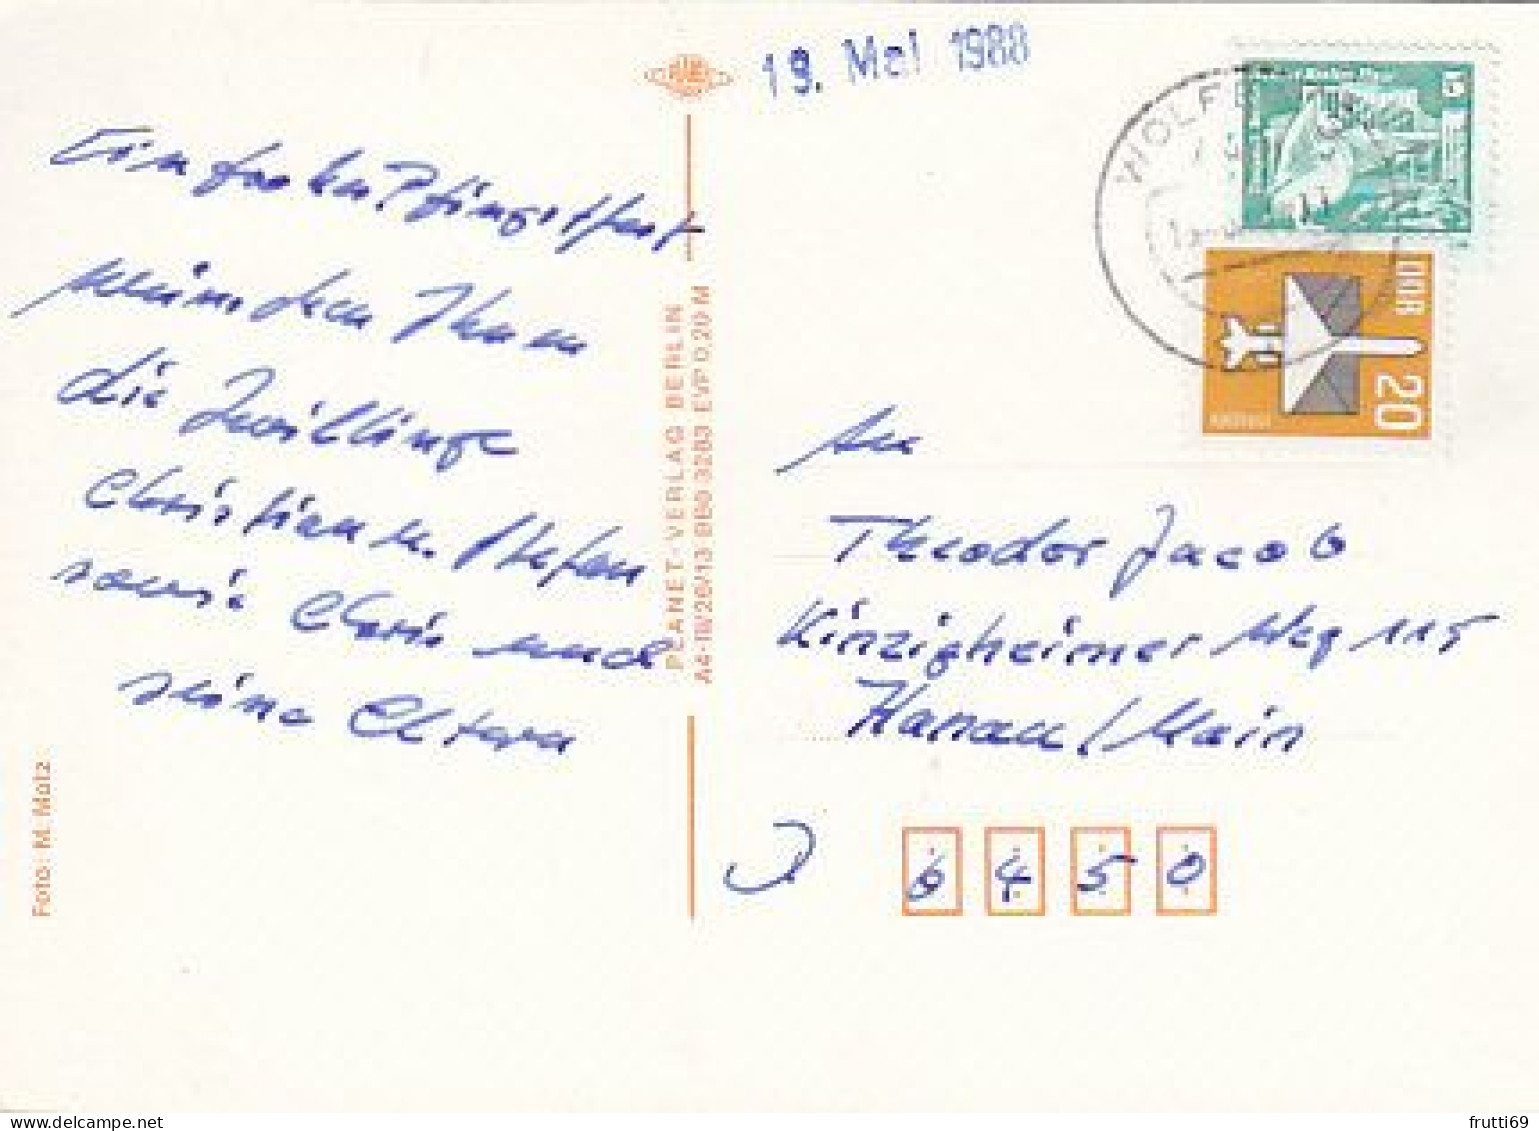 19. Mai 1988
Ein frohes Pfingstfest
wünschen Ihnen
die Zwillinge
Christian u. Stefan
sowie Chris und
seine Eltern
Foto: M. Matz
PLANET-VERLAG BERLIN
EVP 0,20 M
WOLFE
15
DDR
20
An
Theodor Jacob
Kinzigheimer Weg 115
Hanau / Main
6450
frutti69